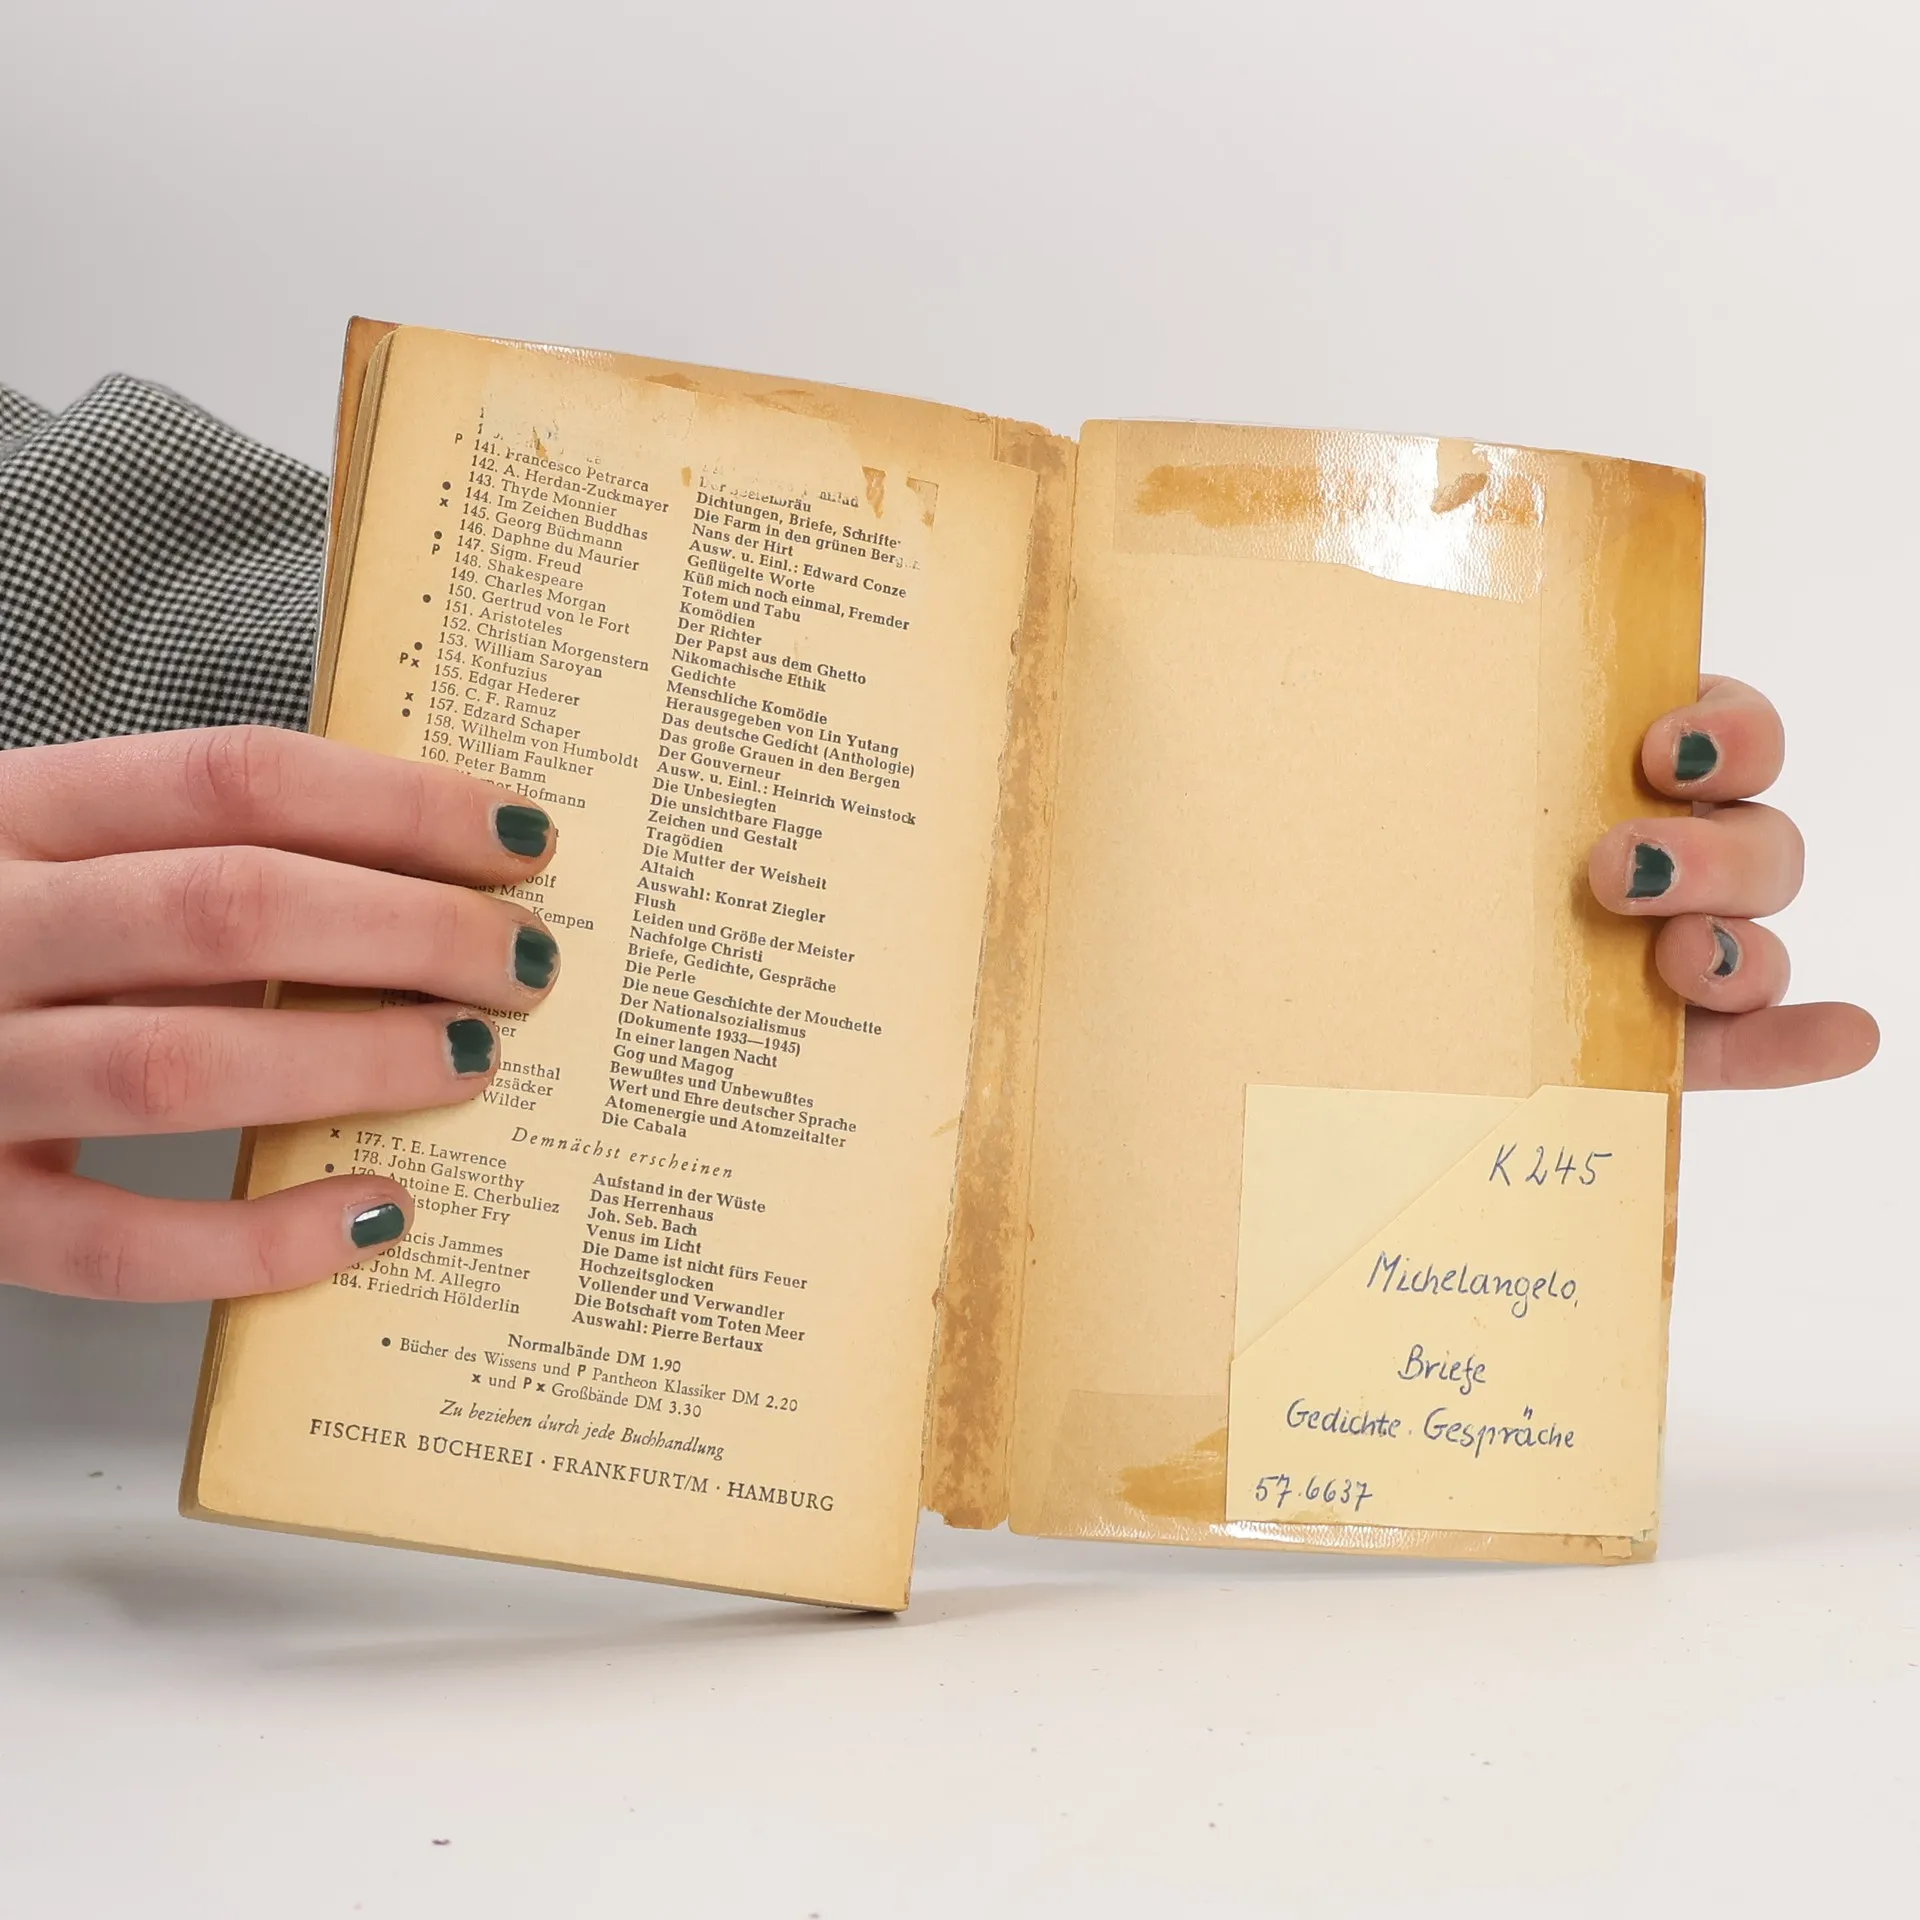 P 141. Francesco Petrarca
142. A. Herdan-Zuckmayer
143. Thyde Monnier
● 144. Im Zeichen Buddhas
x 145. Georg Büchmann
146. Daphne du Maurier
● 147. Sigm. Freud
P 148. Shakespeare
149. Charles Morgan
150. Gertrud von le Fort
● 151. Aristoteles
152. Christian Morgenstern
153. William Saroyan
● 154. Konfuzius
P x 155. Edgar Hederer
156. C. F. Ramuz
x 157. Edzard Schaper
● 158. Wilhelm von Humboldt
159. William Faulkner
160. Peter Bamm
Hofmann
Mann
Kempen
Wilder
Dichtungen, Briefe, Schriften
Die Farm in den grünen Bergen
Nans der Hirt
Ausw. u. Einl.: Edward Conze
Geflügelte Worte
Küß mich noch einmal, Fremder
Totem und Tabu
Komödien
Der Richter
Der Papst aus dem Ghetto
Nikomachische Ethik
Gedichte
Menschliche Komödie
Herausgegeben von Lin Yutang
Das deutsche Gedicht (Anthologie)
Das große Grauen in den Bergen
Der Gouverneur
Ausw. u. Einl.: Heinrich Weinstock
Die Unbesiegten
Die unsichtbare Flagge
Zeichen und Gestalt
Tragödien
Die Mutter der Weisheit
Altaich
Auswahl: Konrat Ziegler
Flush
Leiden und Größe der Meister
Nachfolge Christi
Briefe, Gedichte, Gespräche
Die Perle
Die neue Geschichte der Mouchette
Der Nationalsozialismus
(Dokumente 1933—1945)
In einer langen Nacht
Gog und Magog
Bewußtes und Unbewußtes
Wert und Ehre deutscher Sprache
Atomenergie und Atomzeitalter
Die Cabala
Demnächst erscheinen
x 177. T. E. Lawrence
178. John Galsworthy
● Antoine E. Cherbuliez
Fry
Jammes
John M. Allegro
184. Friedrich Hölderlin
Aufstand in der Wüste
Das Herrenhaus
Joh. Seb. Bach
Venus im Licht
Die Dame ist nicht fürs Feuer
Hochzeitsglocken
Vollender und Verwandler
Die Botschaft vom Toten Meer
Auswahl: Pierre Bertaux
Normalbände DM 1.90
● Bücher des Wissens und P Pantheon Klassiker DM 2.20
x und P x Großbände DM 3.30
Zu beziehen durch jede Buchhandlung
FISCHER BÜCHEREI · FRANKFURT/M · HAMBURG
K 245
Michelangelo,
Briefe
Gedichte. Gespräche
57.6637